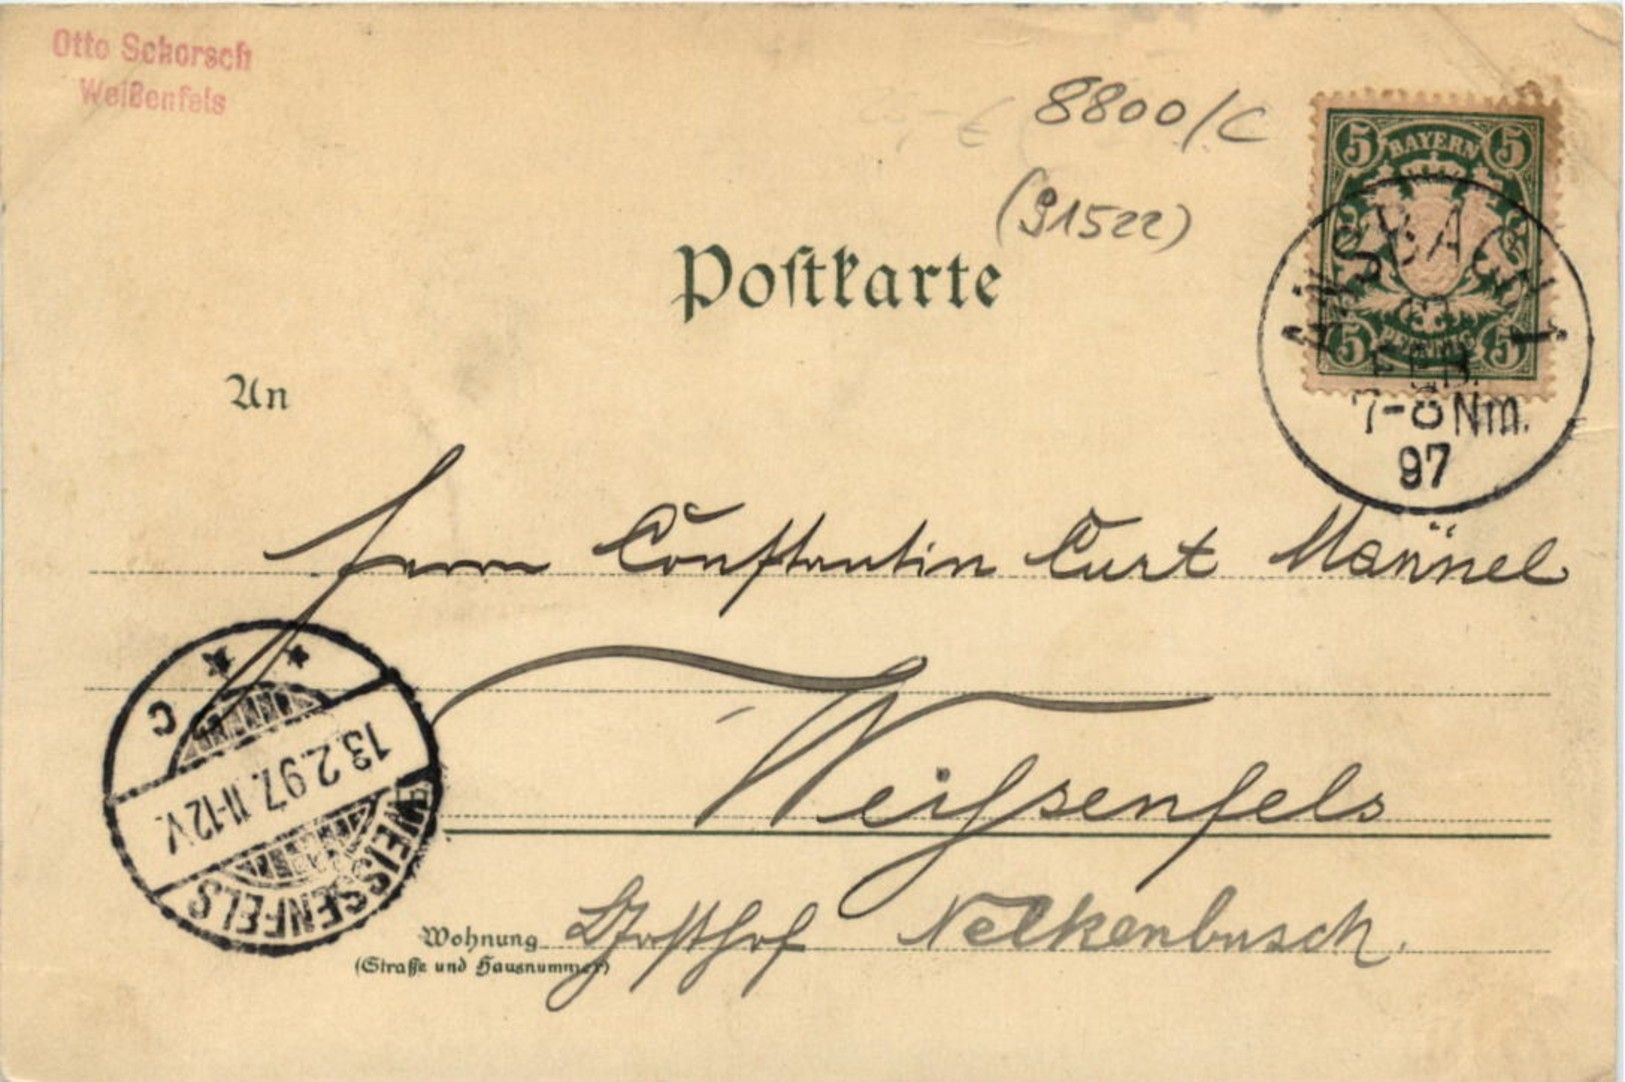 Otto Schorsch
Weißenfels
8800/C
(91522)
5 BAYERN 5
5 5
ANSBACH I
FEB.
7-8 Nm.
97
Postkarte
An
Herrn Constantin Curt Männel
C
13.2.97. 11-12V.
WEISSENFELS
Weißenfels
Wohnung Gasthof Nelkenbusch.
(Straße und Hausnummer)